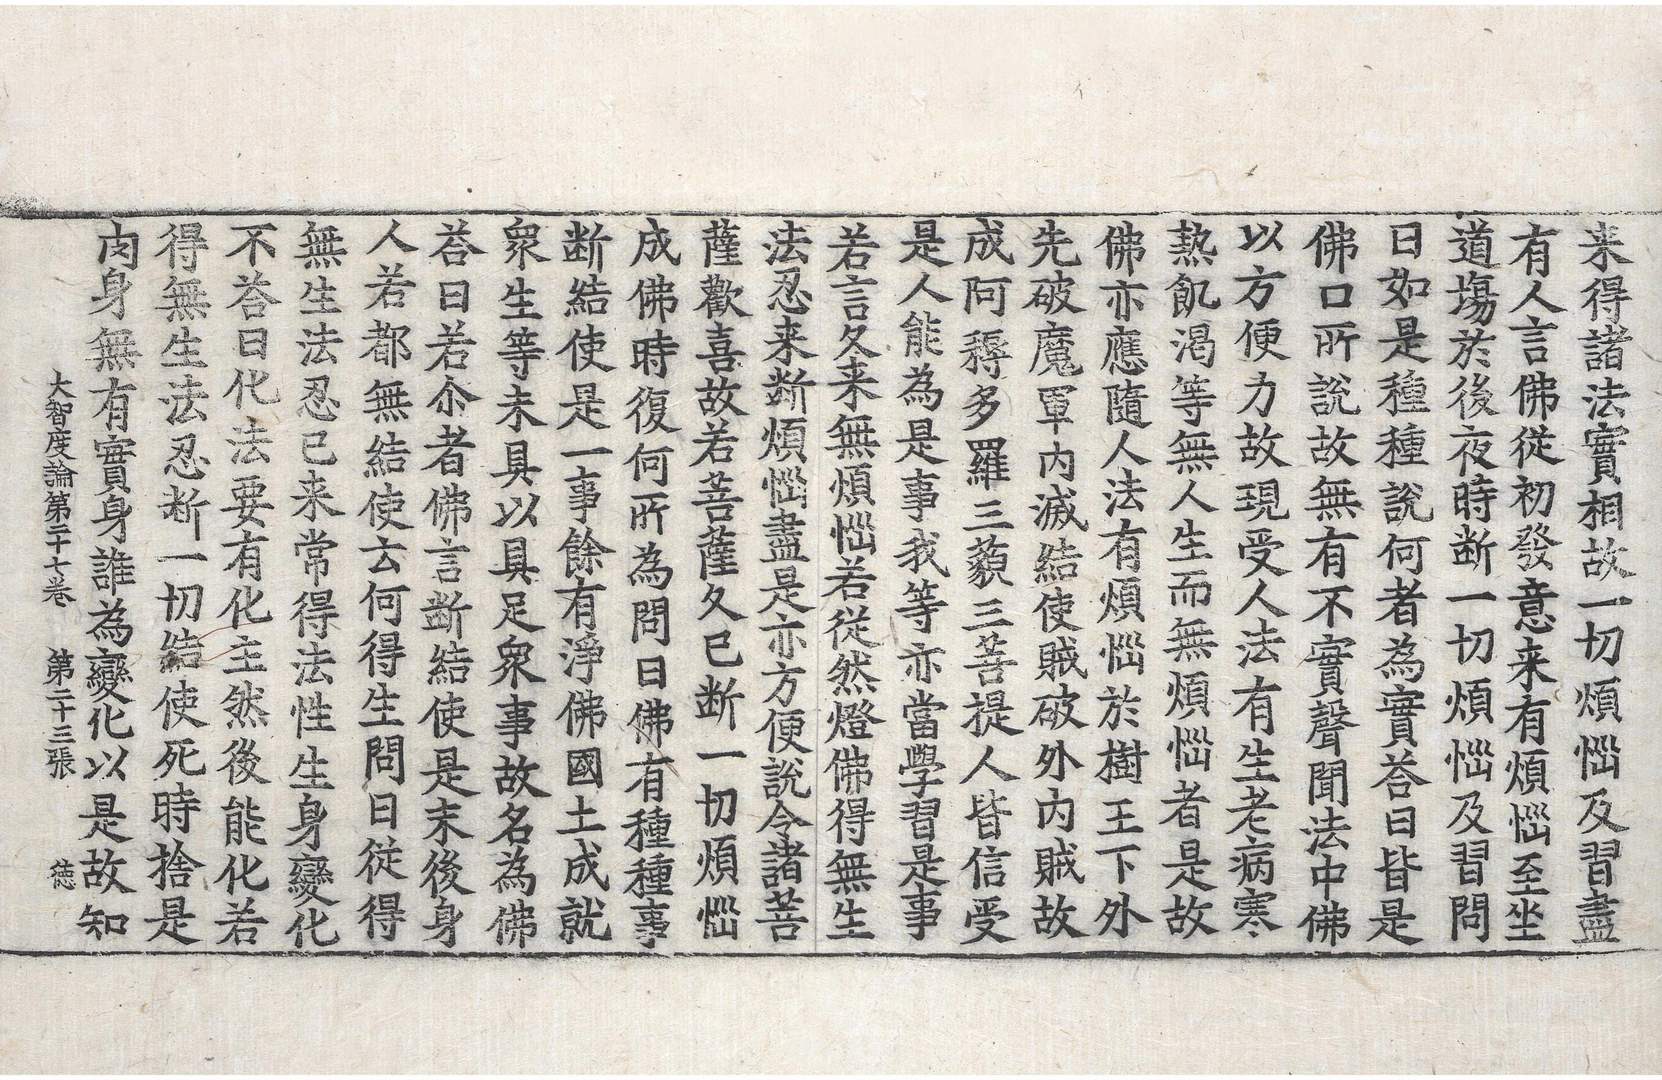 来得諸法實相故一切煩惱及習盡
有人言佛從初發意来有煩惱至坐
道場於後夜時断一切煩惱及習問
曰如是種種說何者為實荅曰皆是
佛口所說故無有不實聲聞法中佛
以方便力故現受人法有生老病寒
熱飢渴等無人生而無煩惱者是故
佛亦應隨人法有煩惱於樹王下外
先破魔軍内滅結使賊破外内賊故
成阿耨多羅三藐三菩提人皆信受
是人能為是事我等亦當學習是事
若言久来無煩惱若從然燈佛得無生
法忍来断煩惱盡是亦方便說令諸菩
薩歡喜故若菩薩久已断一切煩惱
成佛時復何所為問曰佛有種種事
断結使是一事餘有淨佛國土成就
衆生等未具以具足衆事故名為佛
荅曰若尒者佛言断結使是末後身
人若都無結使云何得生問曰從得
無生法忍已来常得法性生身變化
不荅曰化法要有化主然後能化若
得無生法忍断一切結使死時捨是
肉身無有實身誰為變化以是故知
大智度論第二十七卷 第二十三張 徳